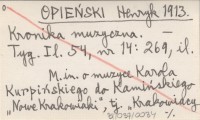 OPIEŃSKI Henryk 1913.
Kronika muzyczna. —
Tyg. Il. 54, nr 14: 269, il.
M. in. o muzyce Karola
Kurpińskiego do Kamińskiego
"Nowe Krakowiaki", tj. "Krakowiacy